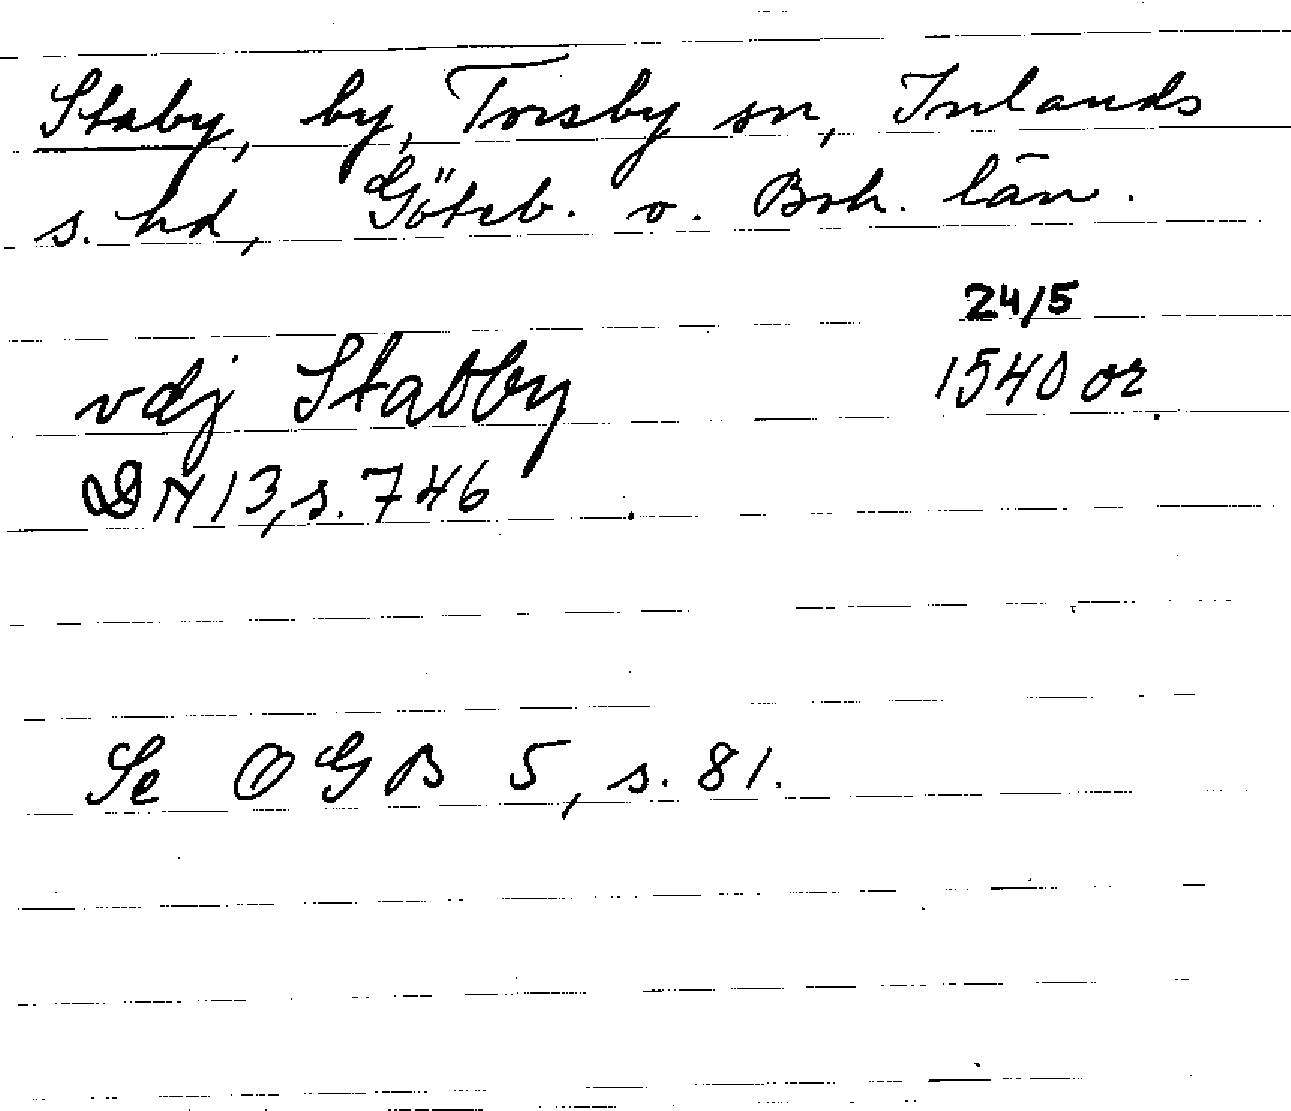 Staby, by, Torsby sn, Inlands
s. hd, Göteb. o. Boh. län.
24/5
vdj Stabby 1540 or.
DN 13, s. 746
Se OGB 5, s. 81.